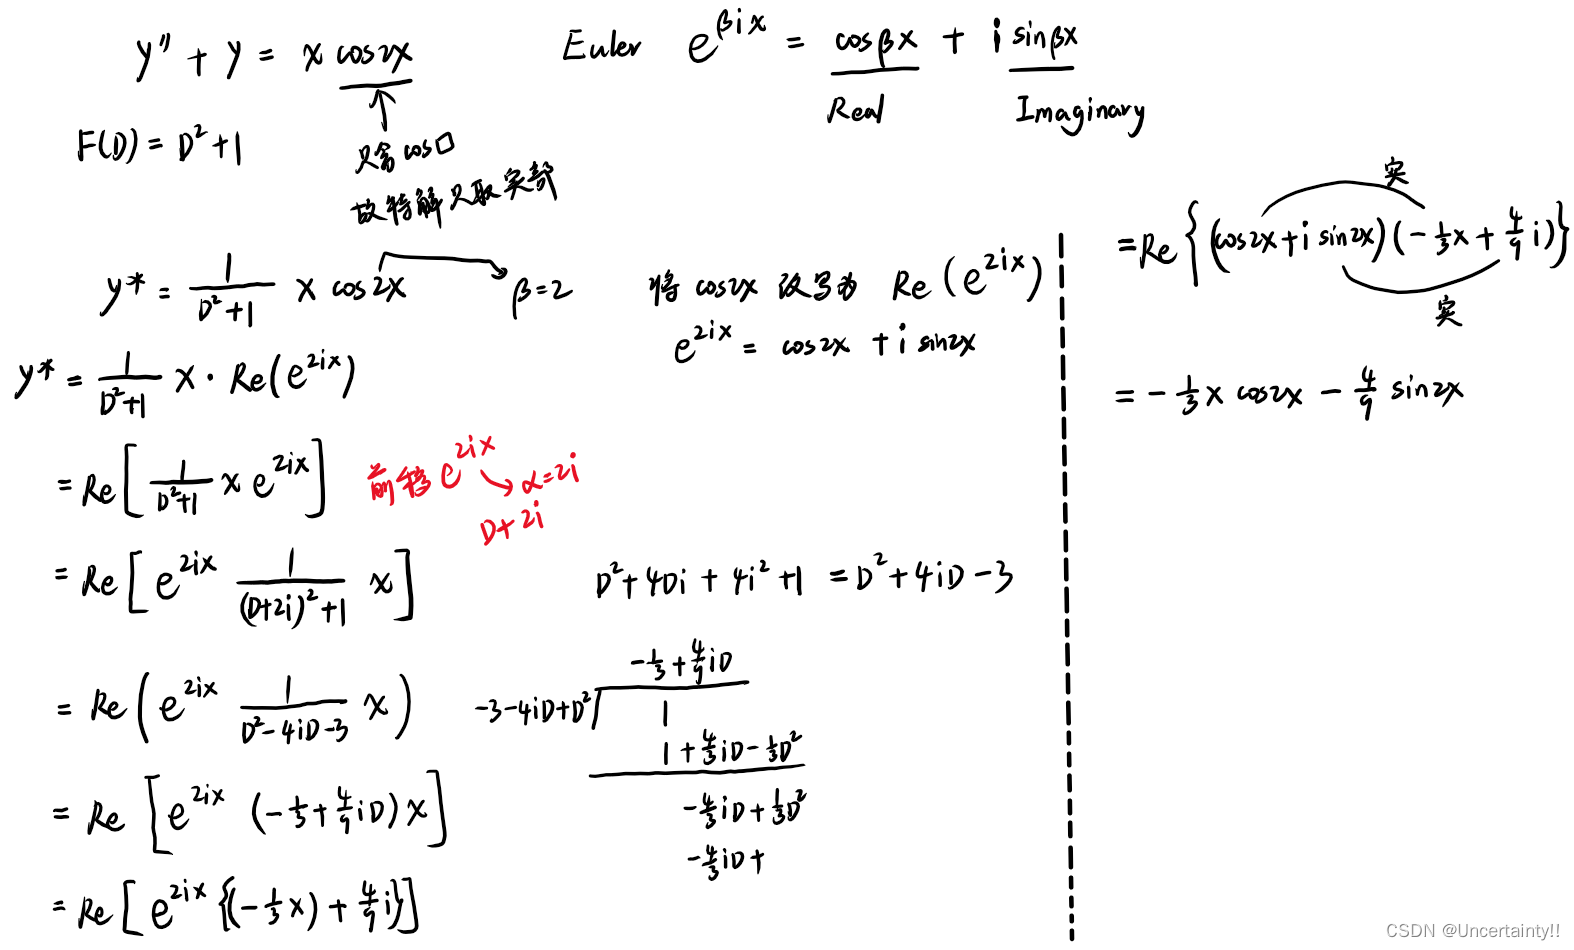 y″ + y = x cos2x
F(D) = D²+1
只含 cos□
故特解只取实部
Euler e^{βix} = cosβx + i sinβx
Real Imaginary
y* = \frac{1}{D²+1} x cos2x β=2
将 cos2x 改写为 Re(e^{2ix})
e^{2ix} = cos2x + i sin2x
y* = \frac{1}{D²+1} x · Re(e^{2ix})
= Re[\frac{1}{D²+1} x e^{2ix}]
前移 e^{2ix} → α=2i
D+2i
= Re[e^{2ix} \frac{1}{(D+2i)²+1} x]
D²+4Di+4i²+1 = D²+4iD-3
= Re(e^{2ix} \frac{1}{D²-4iD-3} x)
-\frac{1}{3}+\frac{4}{9}iD
-3-4iD+D² 1
1+\frac{4}{3}iD-\frac{1}{3}D²
-\frac{4}{3}iD+\frac{1}{3}D²
-\frac{4}{3}iD+
= Re[e^{2ix} (-\frac{1}{3}+\frac{4}{9}iD)x]
= Re[e^{2ix}{(-\frac{1}{3}x)+\frac{4}{9}i}]
实
=Re{(cos2x+i sin2x)(-\frac{1}{3}x+\frac{4}{9}i)}
实
= -\frac{1}{3}x cos2x - \frac{4}{9} sin2x
CSDN @Uncertainty!!